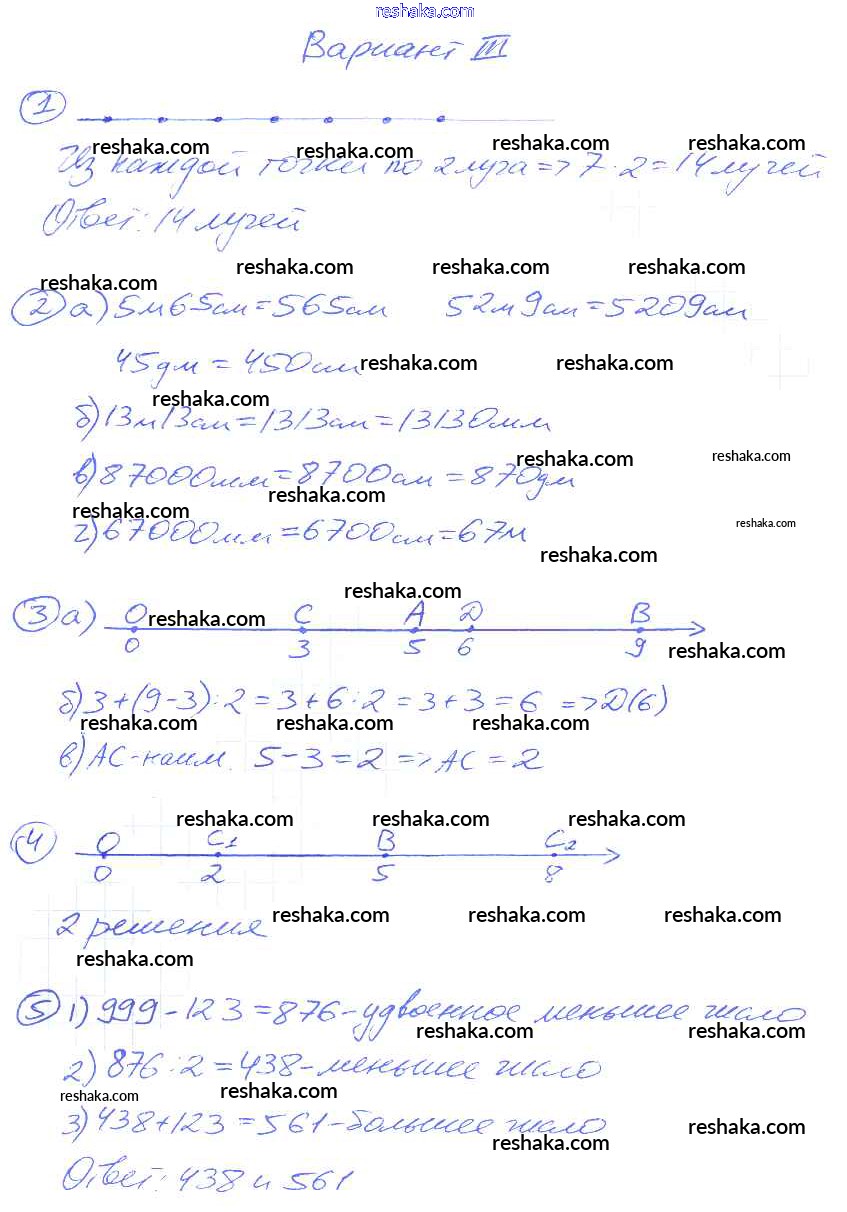 reshaka.com
Вариант III
1
reshaka.com reshaka.com reshaka.com reshaka.com
Из каждой точки по 2 луча => 7 · 2 = 14 лучей
Ответ: 14 лучей
reshaka.com reshaka.com reshaka.com reshaka.com
2 а) 5м65см = 565см 52м9см = 5209см
45дм = 450см reshaka.com reshaka.com
reshaka.com
б) 13м13см = 1313см = 13130мм
reshaka.com reshaka.com
в) 87000мм = 8700см = 870дм
reshaka.com reshaka.com reshaka.com
г) 67000мм = 6700см = 67м
reshaka.com
reshaka.com
3 а) O reshaka.com C A D B
0 3 5 6 9 reshaka.com
б) 3 + (9 - 3) : 2 = 3 + 6 : 2 = 3 + 3 = 6 => D(6)
reshaka.com reshaka.com reshaka.com
в) AC - наим. 5 - 3 = 2 => AC = 2
reshaka.com reshaka.com reshaka.com
4 O C1 B C2
0 2 5 8
2 решения reshaka.com reshaka.com reshaka.com
reshaka.com
5 1) 999 - 123 = 876 - удвоенное меньшее число
reshaka.com reshaka.com
2) 876 : 2 = 438 - меньшее число
reshaka.com reshaka.com
3) 438 + 123 = 561 - большее число
reshaka.com reshaka.com
Ответ: 438 и 561